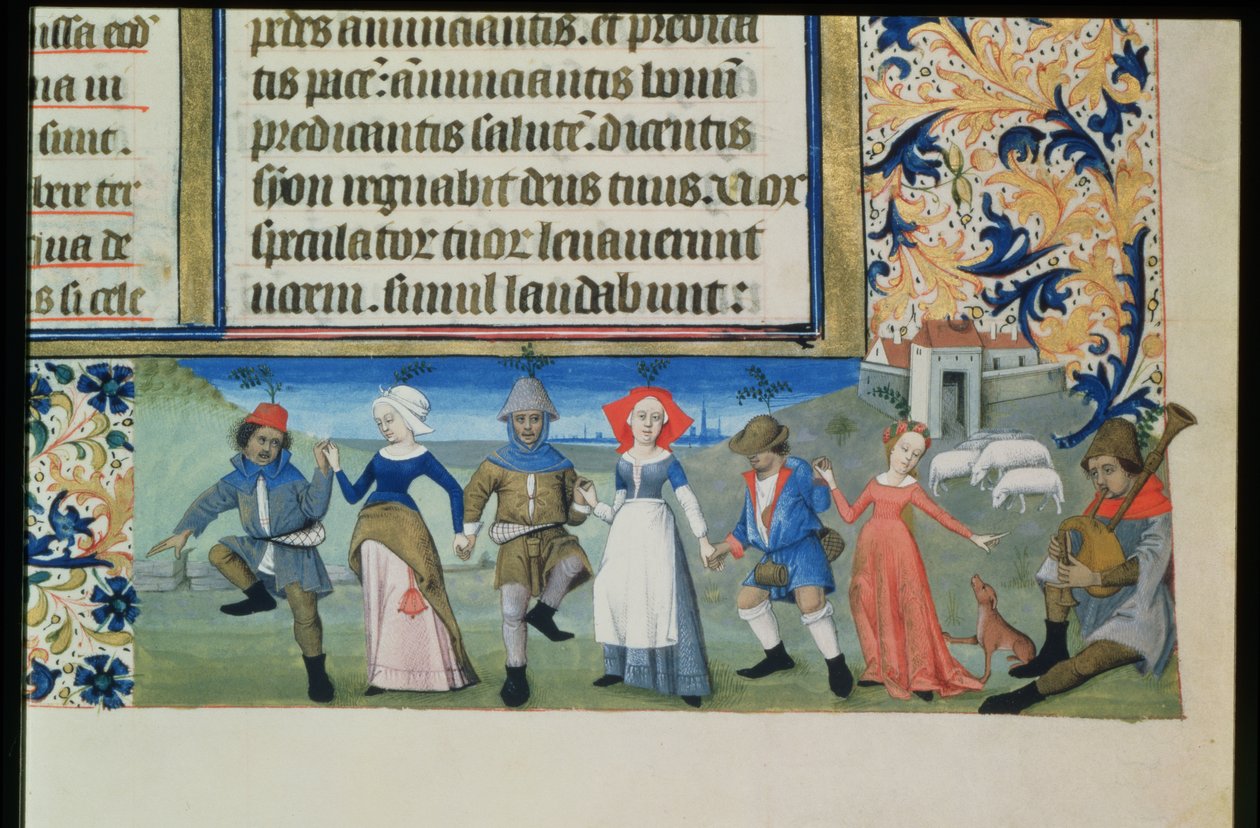 issa eod̄
na in
sunt.
ter
qua de
is si cele
pedes annunciantis. et predica
tis pacē: ānunciantis bonū
predicantis salutē. dicentis
syon regnabit deus tuus. Vox
speculator tuor leuauerunt
uocem. simul laudabunt: